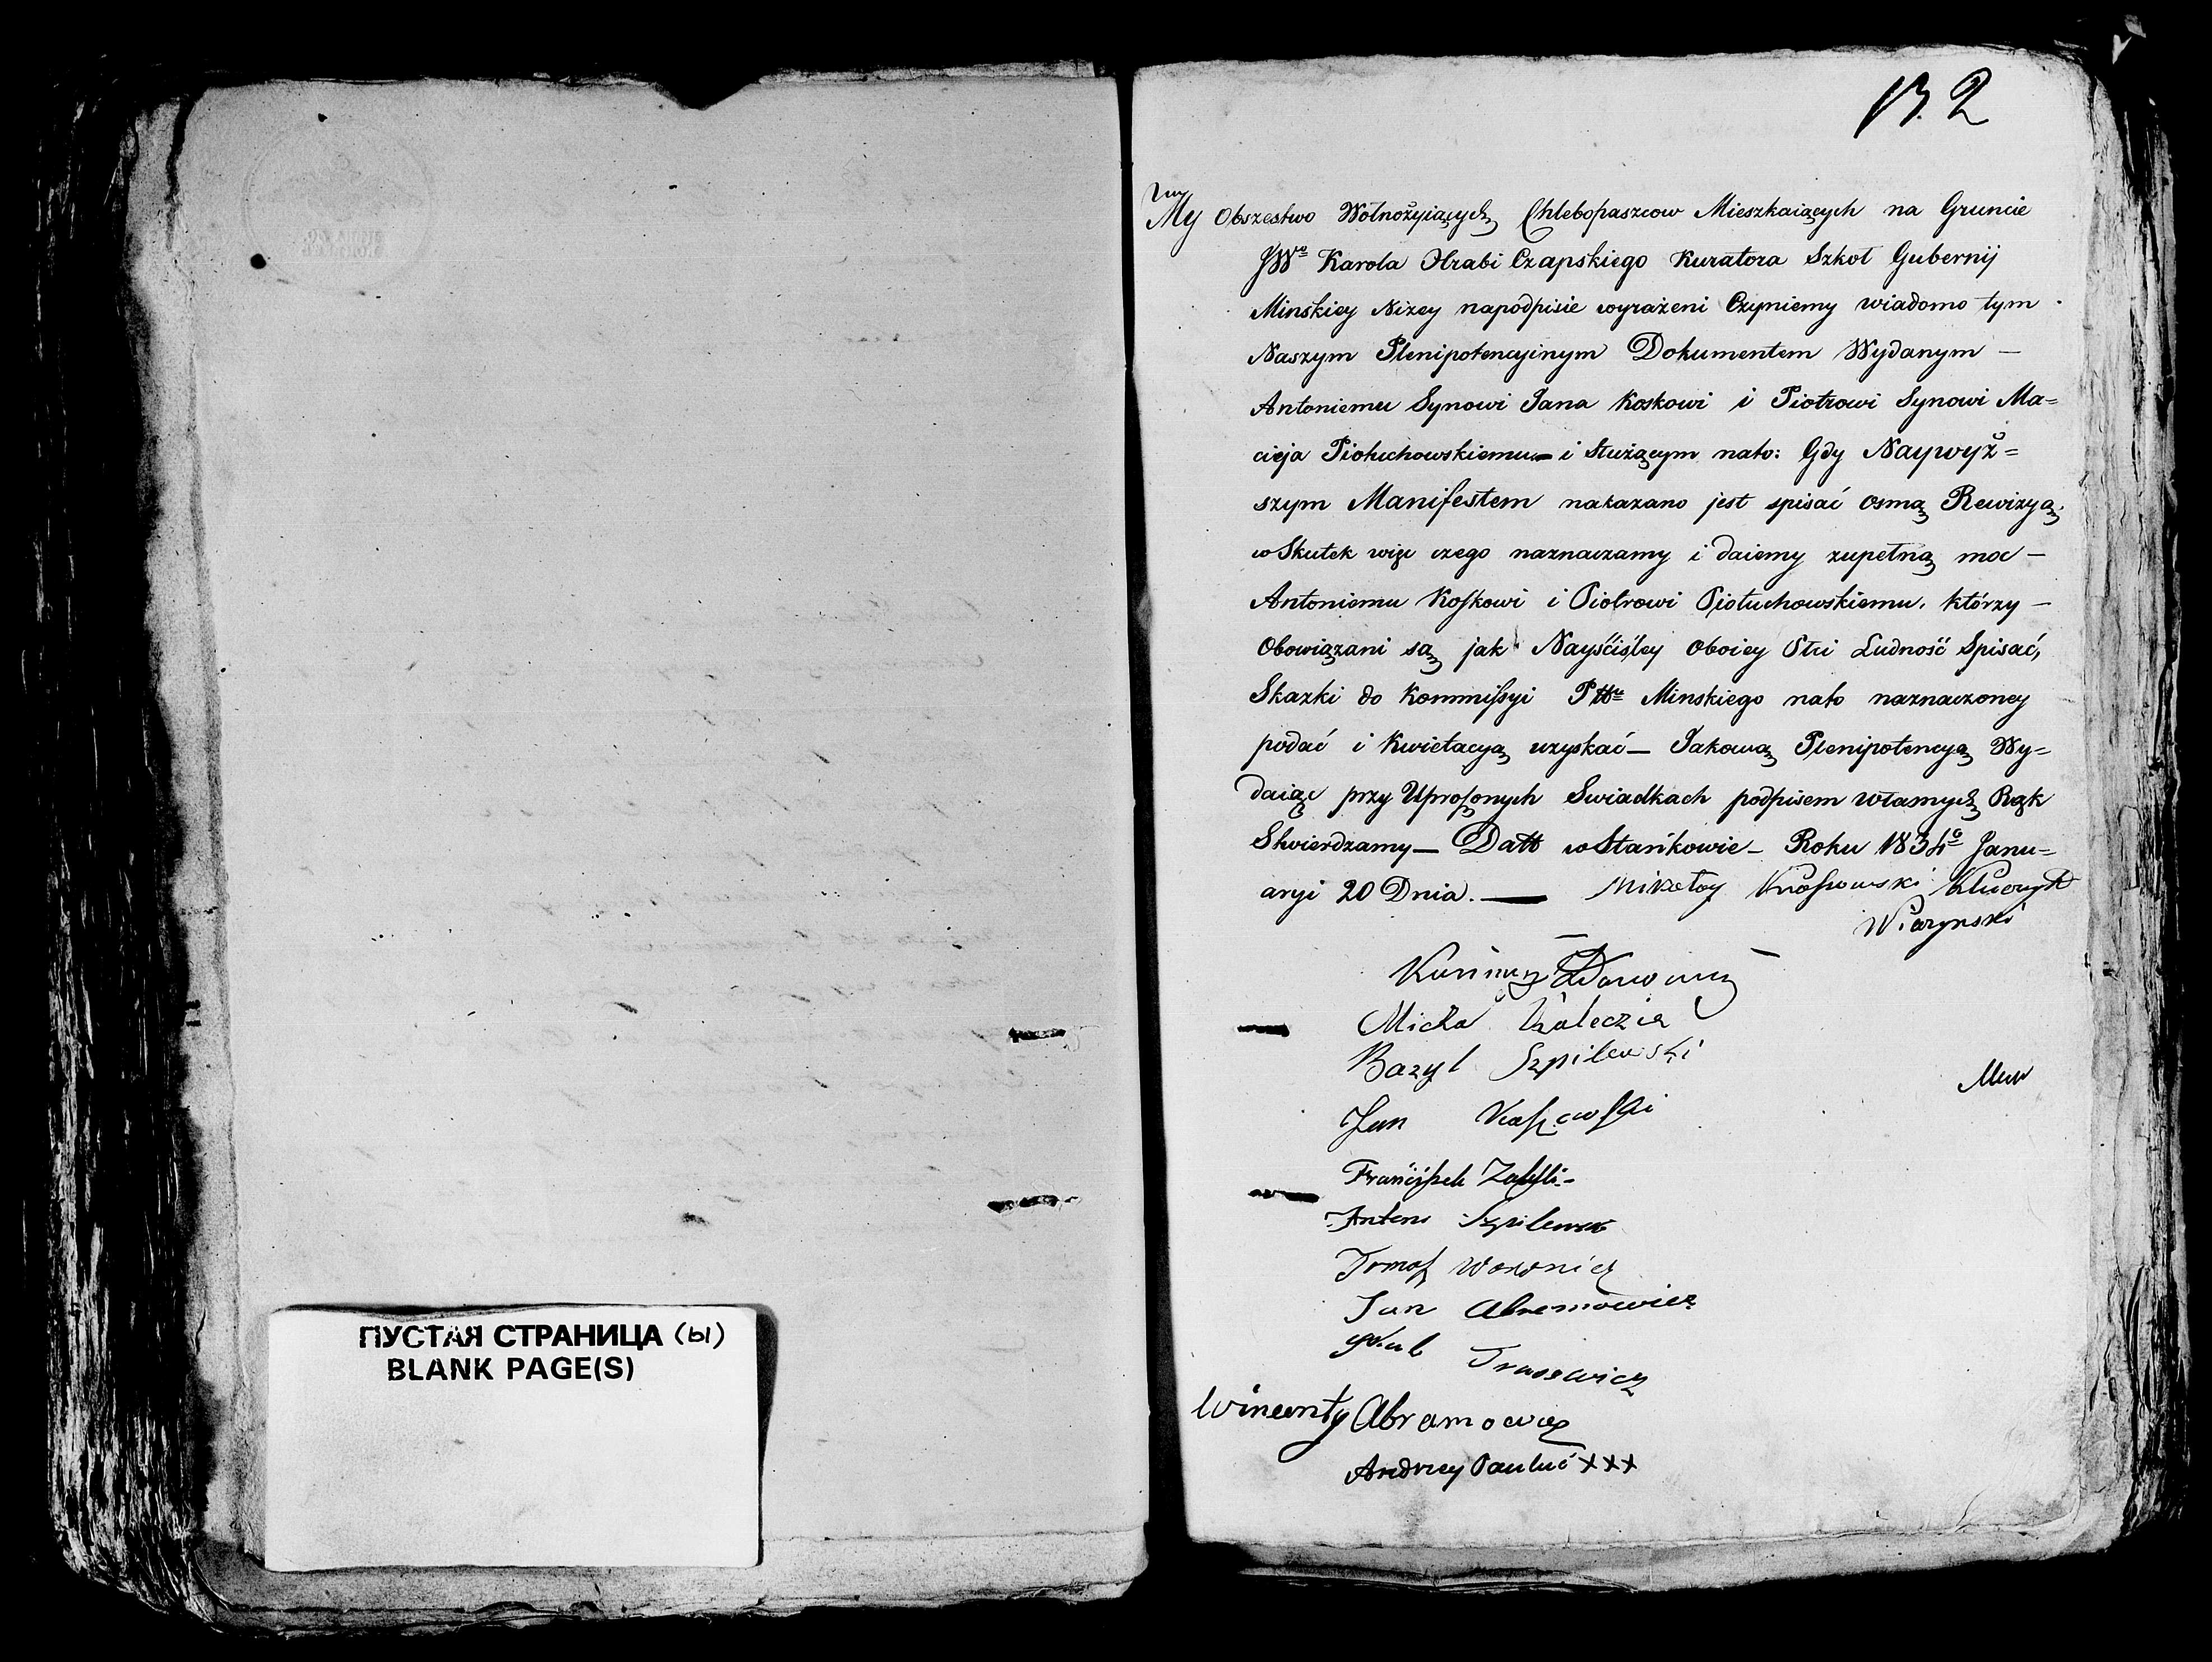 ПУСТАЯ СТРАНИЦА (ы)
BLANK PAGE(S)
13. 2
My Obszestwo Wolnożyiących Chlebopaszcow Mieszkaiących na Gruncie
JWo Karola Hrabi Czapskiego Kuratora Szkoł Gubernij
Minskiey Niżey napodpisie wyrażeni Czyniemy wiadomo tym
Naszym Plenipotencyinym Dokumentem Wydanym —
Antoniemu Synowi Jana Koskowi i Piotrowi Synowi Ma=
cieja Piotuchowskiemu — i Służącym nato: Gdy Naywyż=
szym Manifestem nakazano jest spisać osmą Rewizyą,
w Skutek więc czego naznaczamy i daiemy zupełną moc —
Antoniemu Koskowi i Piotrowi Piotuchowskiemu, którzy —
Obowiązani są jak Nayściśley oboiey Płci Ludność Spisać,
Skazki do Kommissyi Pttu Minskiego nato naznaczoney
podać i Kwietacyą uzyskać — Jakową Plenipotencyą Wy=
daiąc przy Uproszonych Swiadkach podpisem własnych Rąk
Stwierdzamy — Datt w Stańkowie — Roku 1834o Janu=
aryi 20 Dnia. — Mikołay Kluczyk
Bazyl Szpilewski
Jan
Franciszek
Antoni Szpilewski
Tomasz Woronicz
Jan Abramowicz
Jakub Trusewicz
Wincenty Abramowicz
Andrzey Pauluć XXX